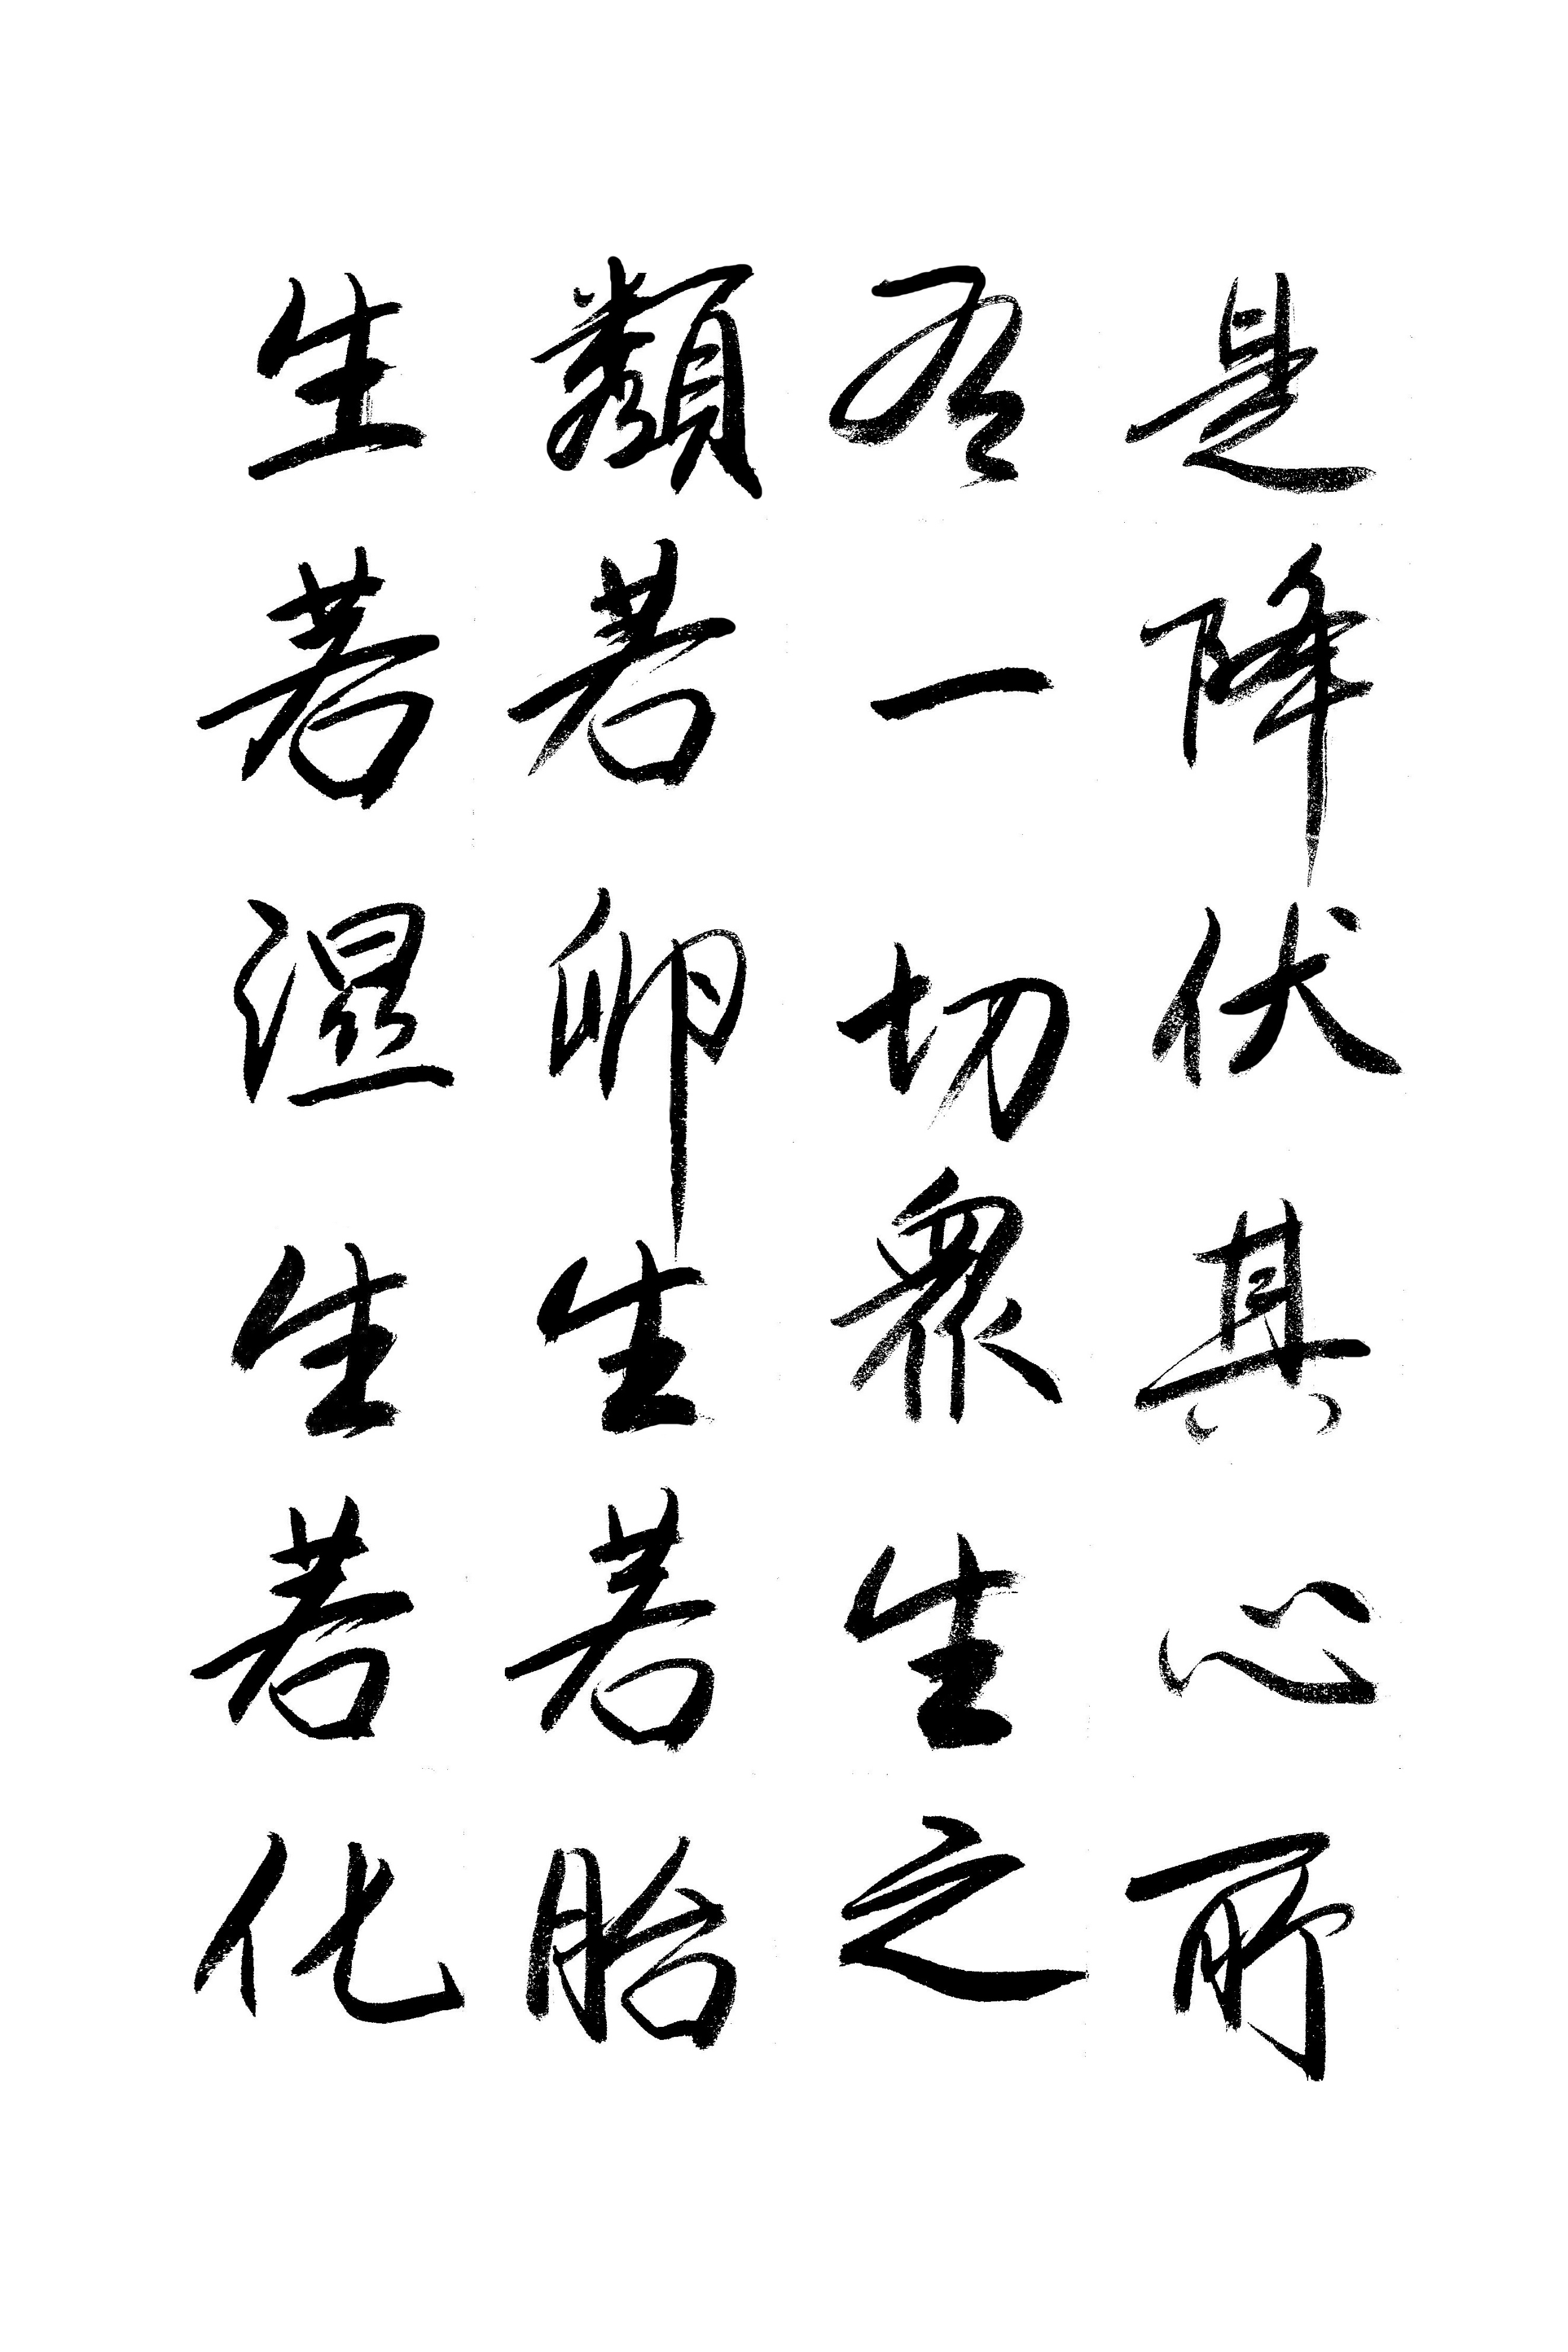 是降伏其心所
有一切眾生之
類若卵生若胎
生若濕生若化